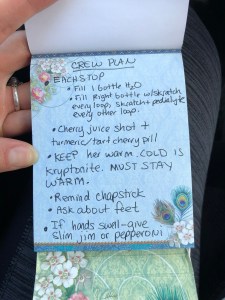 CREW PLAN
• EACH STOP
• Fill 1 bottle H2O
• Fill Right bottle w/skratch
every loop, Skratch + pedialyte
every other loop.
• Cherry juice shot +
turmeric/tart cherry pill
• KEEP her warm. COLD IS
Kryptonite. MUST STAY
WARM.
• Remind chapstick
• Ask about feet
• If hands swell - give
slim jim or pepperoni